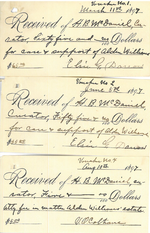 Voucher No. 1
March 11th 1917.
Received of H.B. McDaniel, Cu-
rator, Sixty five and no/100 Dollars
for care & support of Alda Williams
$65.00 Elsie G. Dawson
Voucher No. 2
June 8th 1917.
Received of H.B. McDaniel
Curator, Fifty five & no/100 Dollars
for care & support of Alda Williams
Elsie G. Dawson
Voucher No. 3
Aug 10th 1917.
Received of H.B. McDaniel, cu-
rator, Five & no/100 Dollars
atty fee in matter Alda Williams estate
$5.00